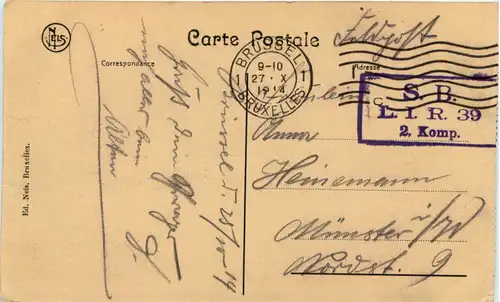 NELS
Carte Postale
Correspondance
Adresse
Feldpost
BRÜSSEL 1
9-10
27 · X
1914
1 BRUXELLES 1
S. B.
L. I. R. 39
2. Komp.
Fräulein
Anna
Heinemann
Münster i/W
Nordst. 9
Brüssel d. 25/10 14
Gruß Dein
Ed. Nels, Bruxelles.